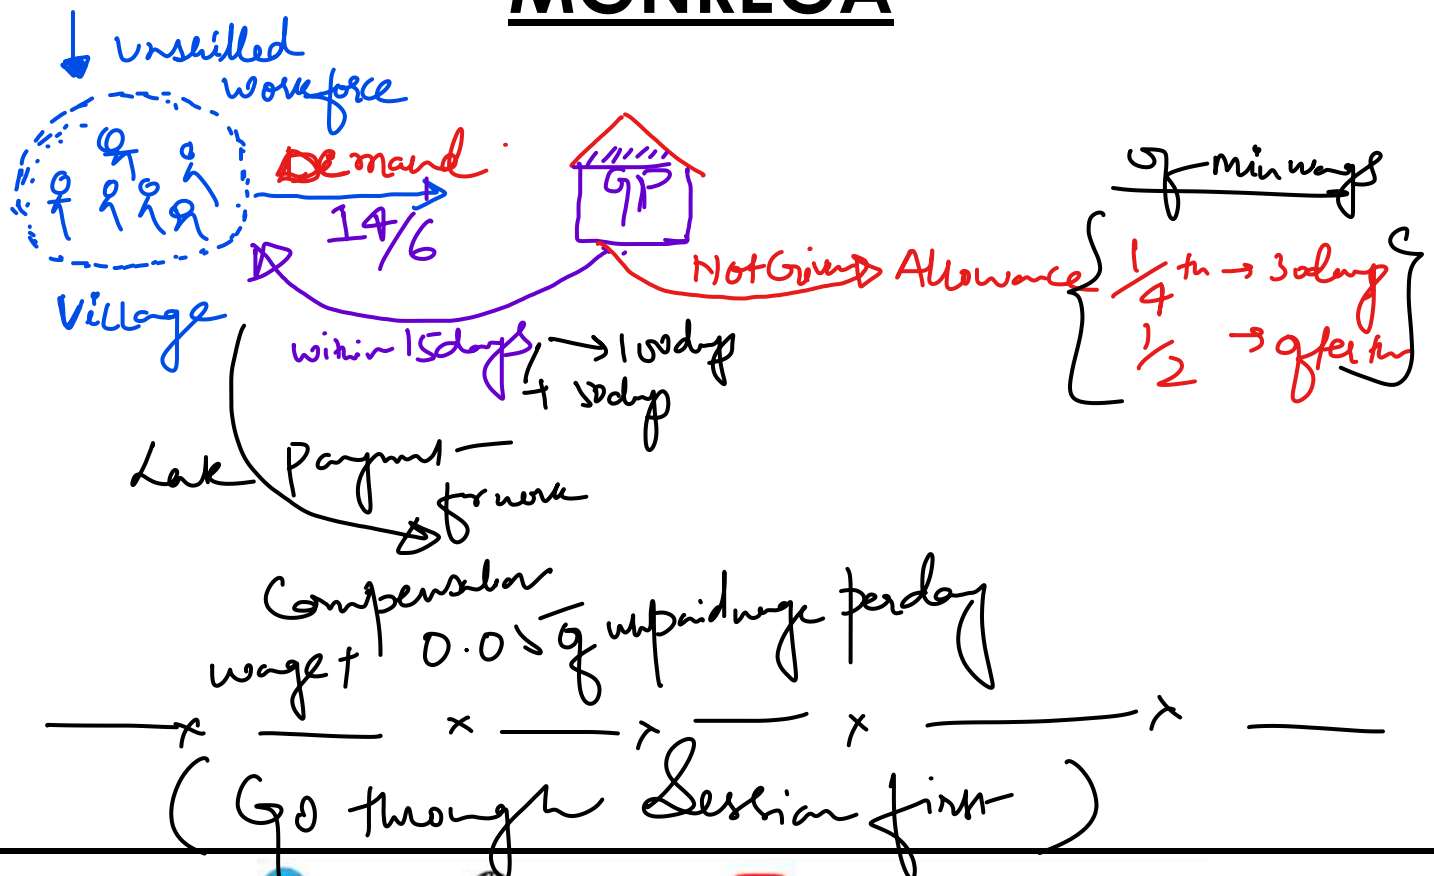 MGNREGA
unskilled
workforce
Demand
14/6
GP
Village
within 15 days
→ 100 days
+ 50 days
Not Given
Allowance
of min wage
1/4 th → 30 days
1/2 → after th
Late payment
for work
Compensation
wage + 0.05 of unpaid wage per day
(Go through Session first)